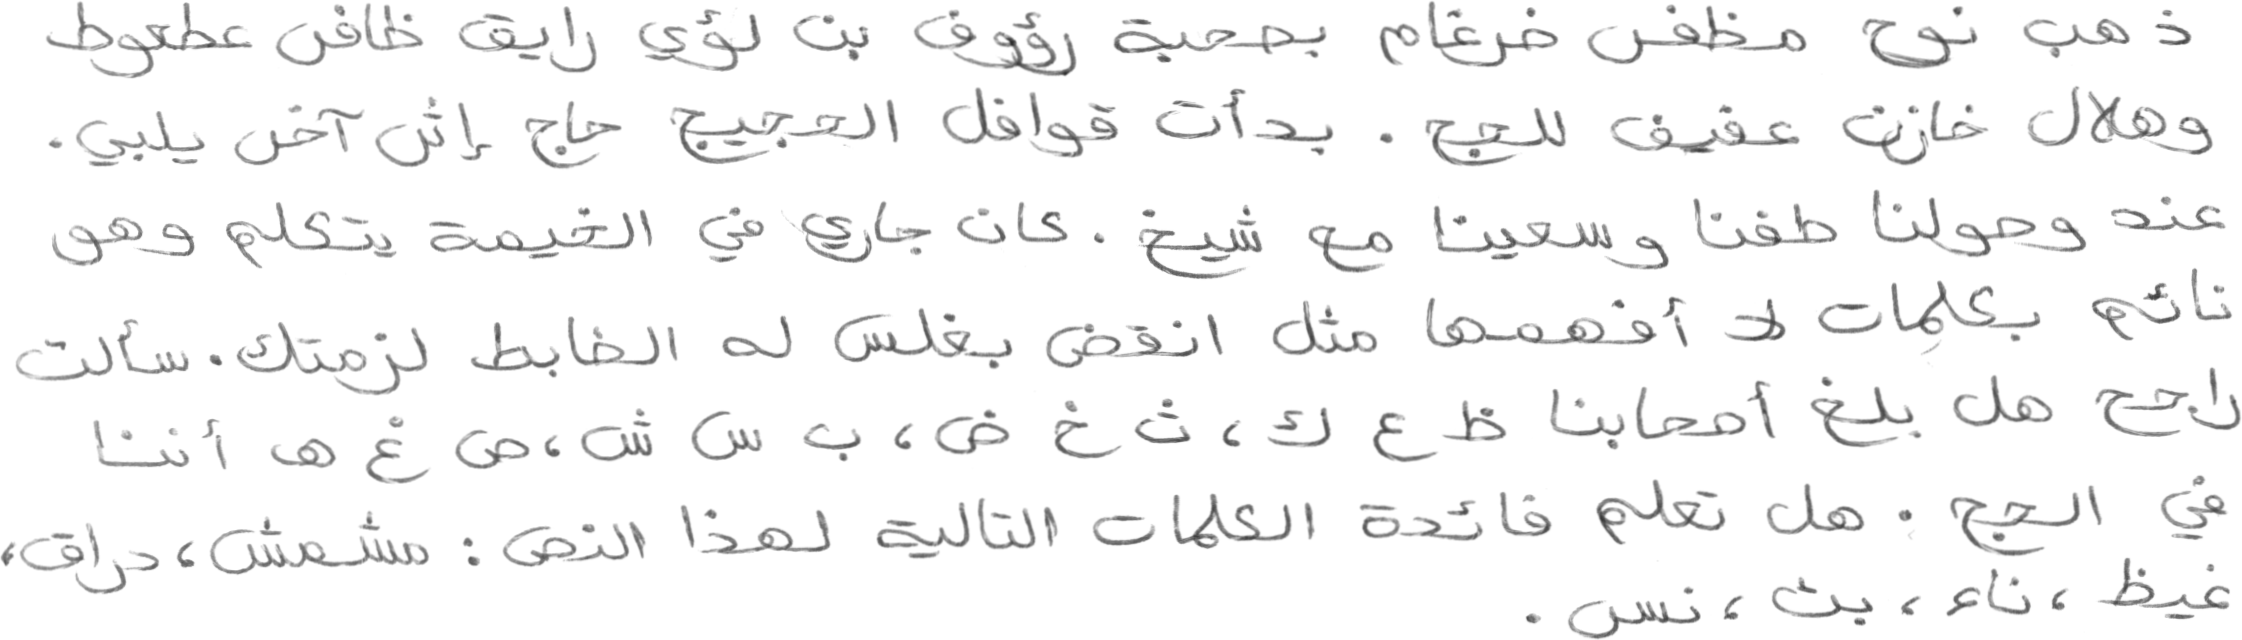 ذهب نوح مظفر ضرغام بصحبة رؤوف بن لؤي رايق ظافر عطعوط
وهلال خازن عفيف للحج. بدأت قوافل الحجيج حاج إثر آخر يلبي.
عند وصولنا طفنا وسعينا مع شيخ. كان جاري في الخيمة يتكلم وهو
نائم بكلمات لا أفهمها مثل انقض بغلس له الضابط لزمتك. سألت
راجح هل بلغ أصحابنا ظ ع ك، ث خ ض، ب س ش، ص غ هـ أننا
في الحج. هل تعلم فائدة الكلمات التالية لهذا النص: مشمش، دراق،
غيظ، ناء، بث، نسر.